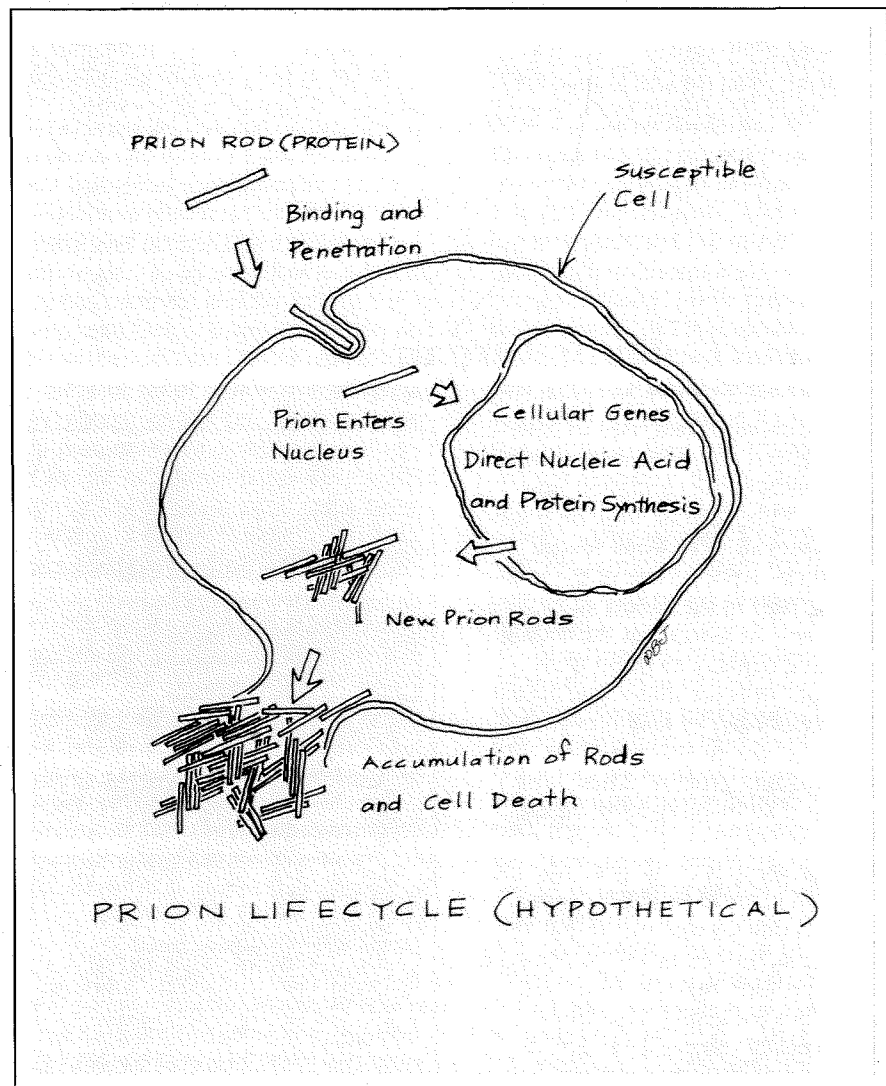 PRION ROD (PROTEIN)
Binding and
Penetration
Susceptible
Cell
Prion Enters
Nucleus
Cellular Genes
Direct Nucleic Acid
and Protein Synthesis
New Prion Rods
Accumulation of Rods
and Cell Death
PRION LIFECYCLE (HYPOTHETICAL)